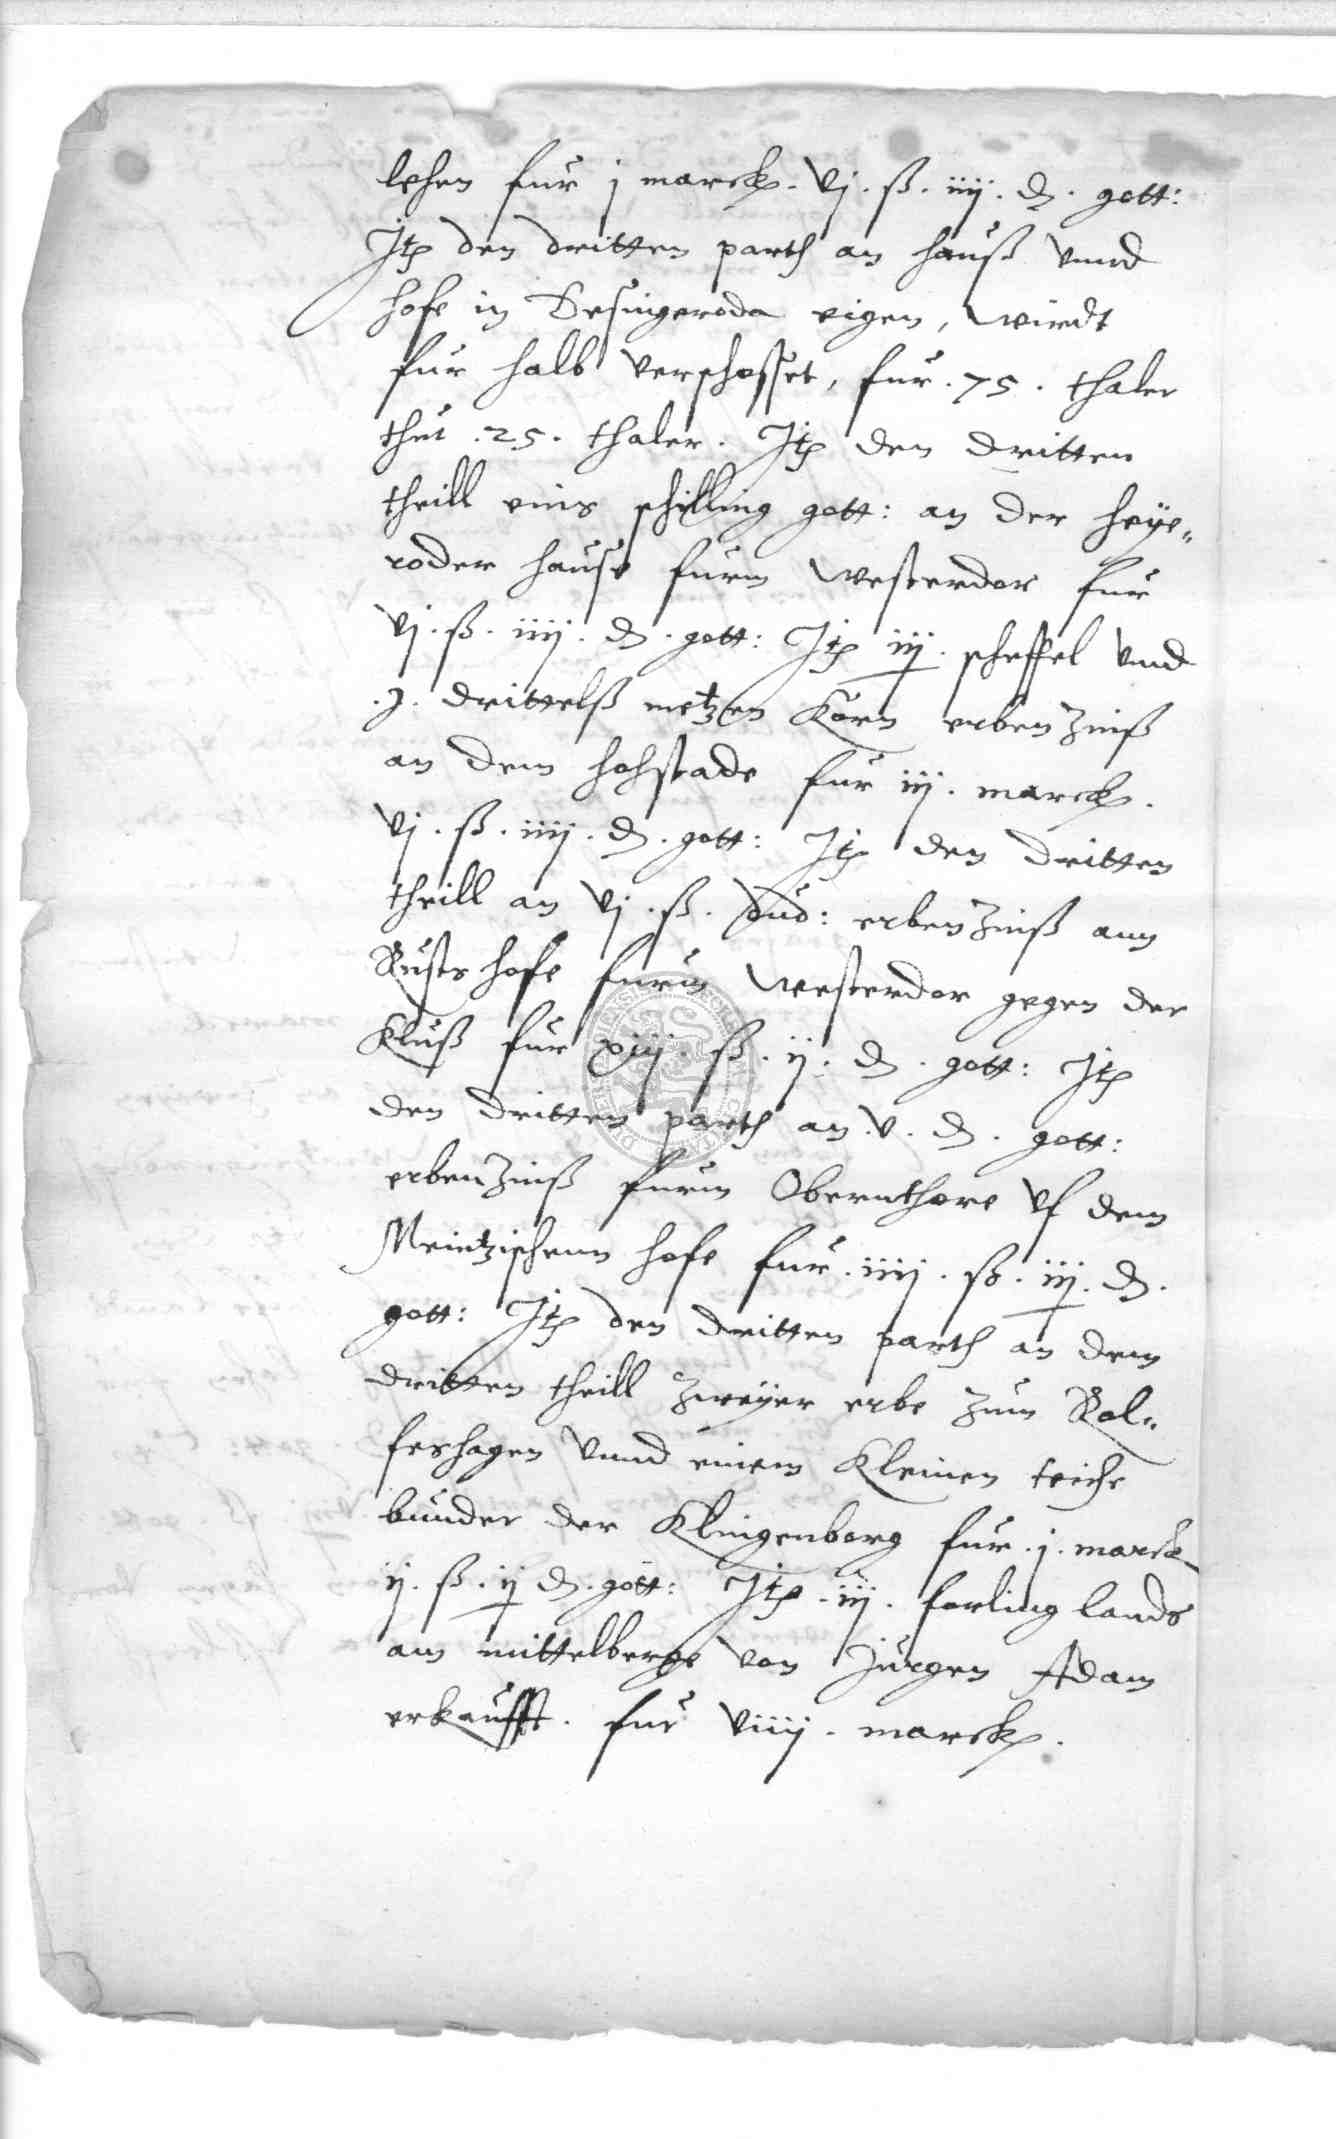 lehen fur j marck. vj. ß. iiij. ₰. gott:
Itē den dritten parth an hauß vnnd
hofe in Desingeroda eigen, wirdt
fur halb verschosset, fur . 75 . thaler
thut . 25 . thaler. Itē den dritten
theill eins schilling gott: an der Heÿe„
roder hause furm Westerdor fur
vj. ß. iiij. ₰. gott: Itē iij. scheffel vnnd
.j. drittelß metzen Korn erbenZinß
an dem hohstade fur iij. marck.
vj. ß. iiij. ₰. gott: Itē den dritten
theill an vj. ß. dud: erbenZinß ann
Rusts hofe furm Westerdor gegen der
Kluß fur xiij. ß. ij. ₰. gott: Itē
den dritten parth an .v. ₰. gott:
erbenZinß furm Obernthore vf dem
Meintzischenn hofe fur . iiij. ß. iij. ₰.
gott: Itē den dritten parth an dem
dritten theill Zweÿer erbe Zum Rol„
feshagen vnnd einem Kleinen teiche
bunder der Klingenborg fur . j. marck
ij. ß. ij ₰. gott: Itē . iij. forling lands
am mittelberge von Jurgen Adam
erkaufft. fur viiij. marck.